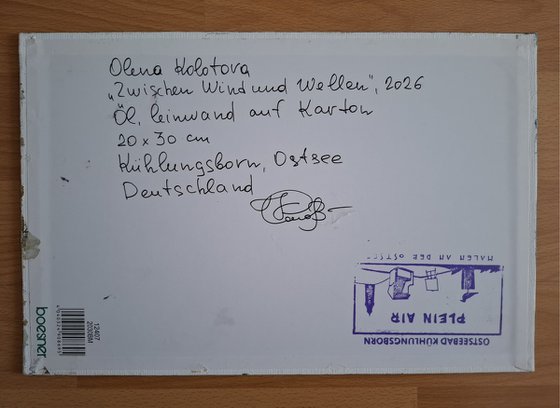 Olena Kolotova
„Zwischen Wind und Wellen", 2026
Öl, Leinwand auf Karton
20 x 30 cm
Kühlungsborn, Ostsee
Deutschland
OSTSEEBAD KÜHLUNGSBORN
PLEIN AIR
MALEN AN DER OSTSEE
boesner